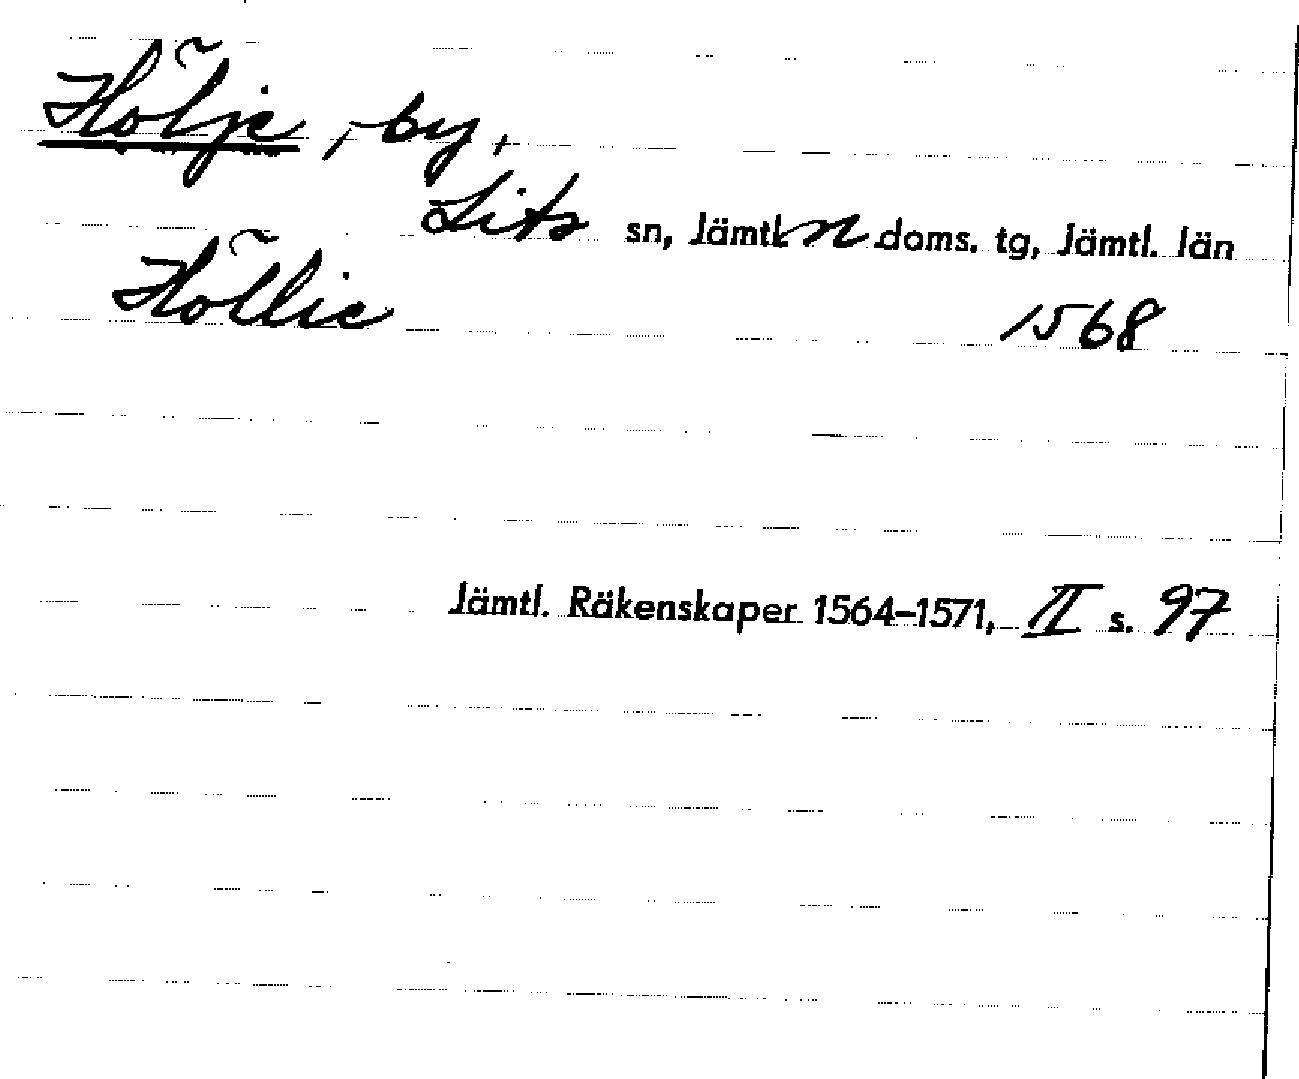 Hölje, by,
Lits sn, Jämtl. n doms. tg, Jämtl. län
Höllie 1568
Jämtl. Räkenskaper 1564–1571, II s. 97